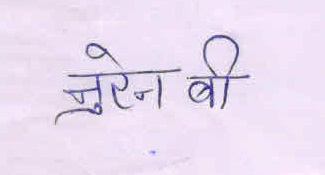 नुरेन बी